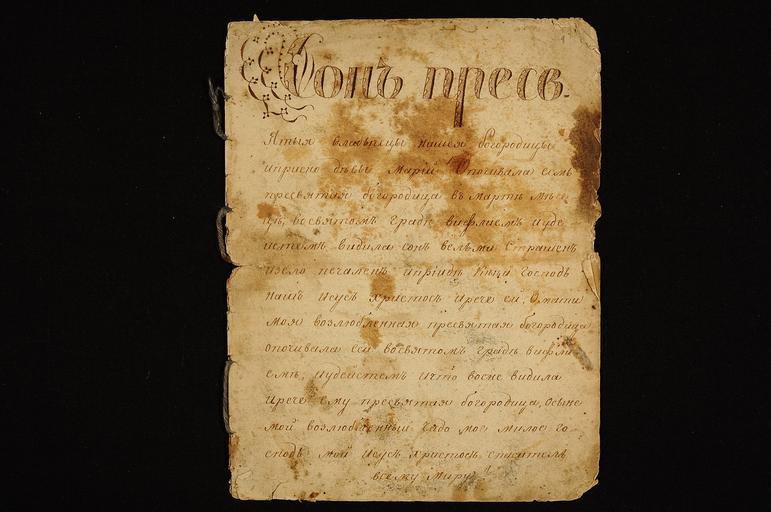 Сонъ пресв.
Ятыя владычцы нашея богородицы
иприсно дѣвы марiи Опочивала есмь
пресвятая богородица въ мартѣ мѣс
цѣ, восвятомъ Градѣ вифлиемѣ иуде
истемъ видила сонъ вельми Страшенъ
изело печаленъ иприиде кнеи Господь
нашъ Исусъ христосъ ирече ей, О мати
моя возлюбленная пресвятая богородица
опочивала еси восвятомъ Градѣ вифли
емѣ, иудейстемъ ичто восне видила
ирече ему пресвятая богородица, Осыне
мой возлюбленный Чадо мое милое го
сподь мой Исусъ христосъ спаситель
всему миру